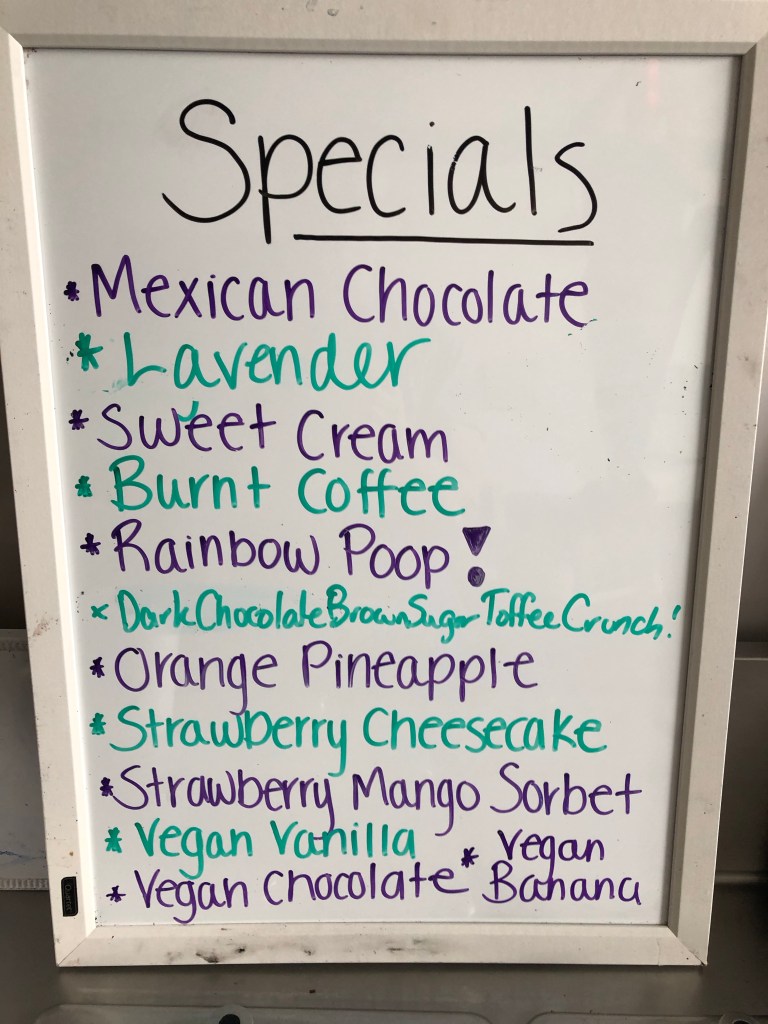 Specials
* Mexican Chocolate
* Lavender
* Sweet Cream
* Burnt Coffee
* Rainbow Poop!
* Dark Chocolate Brown Sugar Toffee Crunch!
* Orange Pineapple
* Strawberry Cheesecake
* Strawberry Mango Sorbet
* Vegan Vanilla
* Vegan Chocolate
* Vegan
Banana